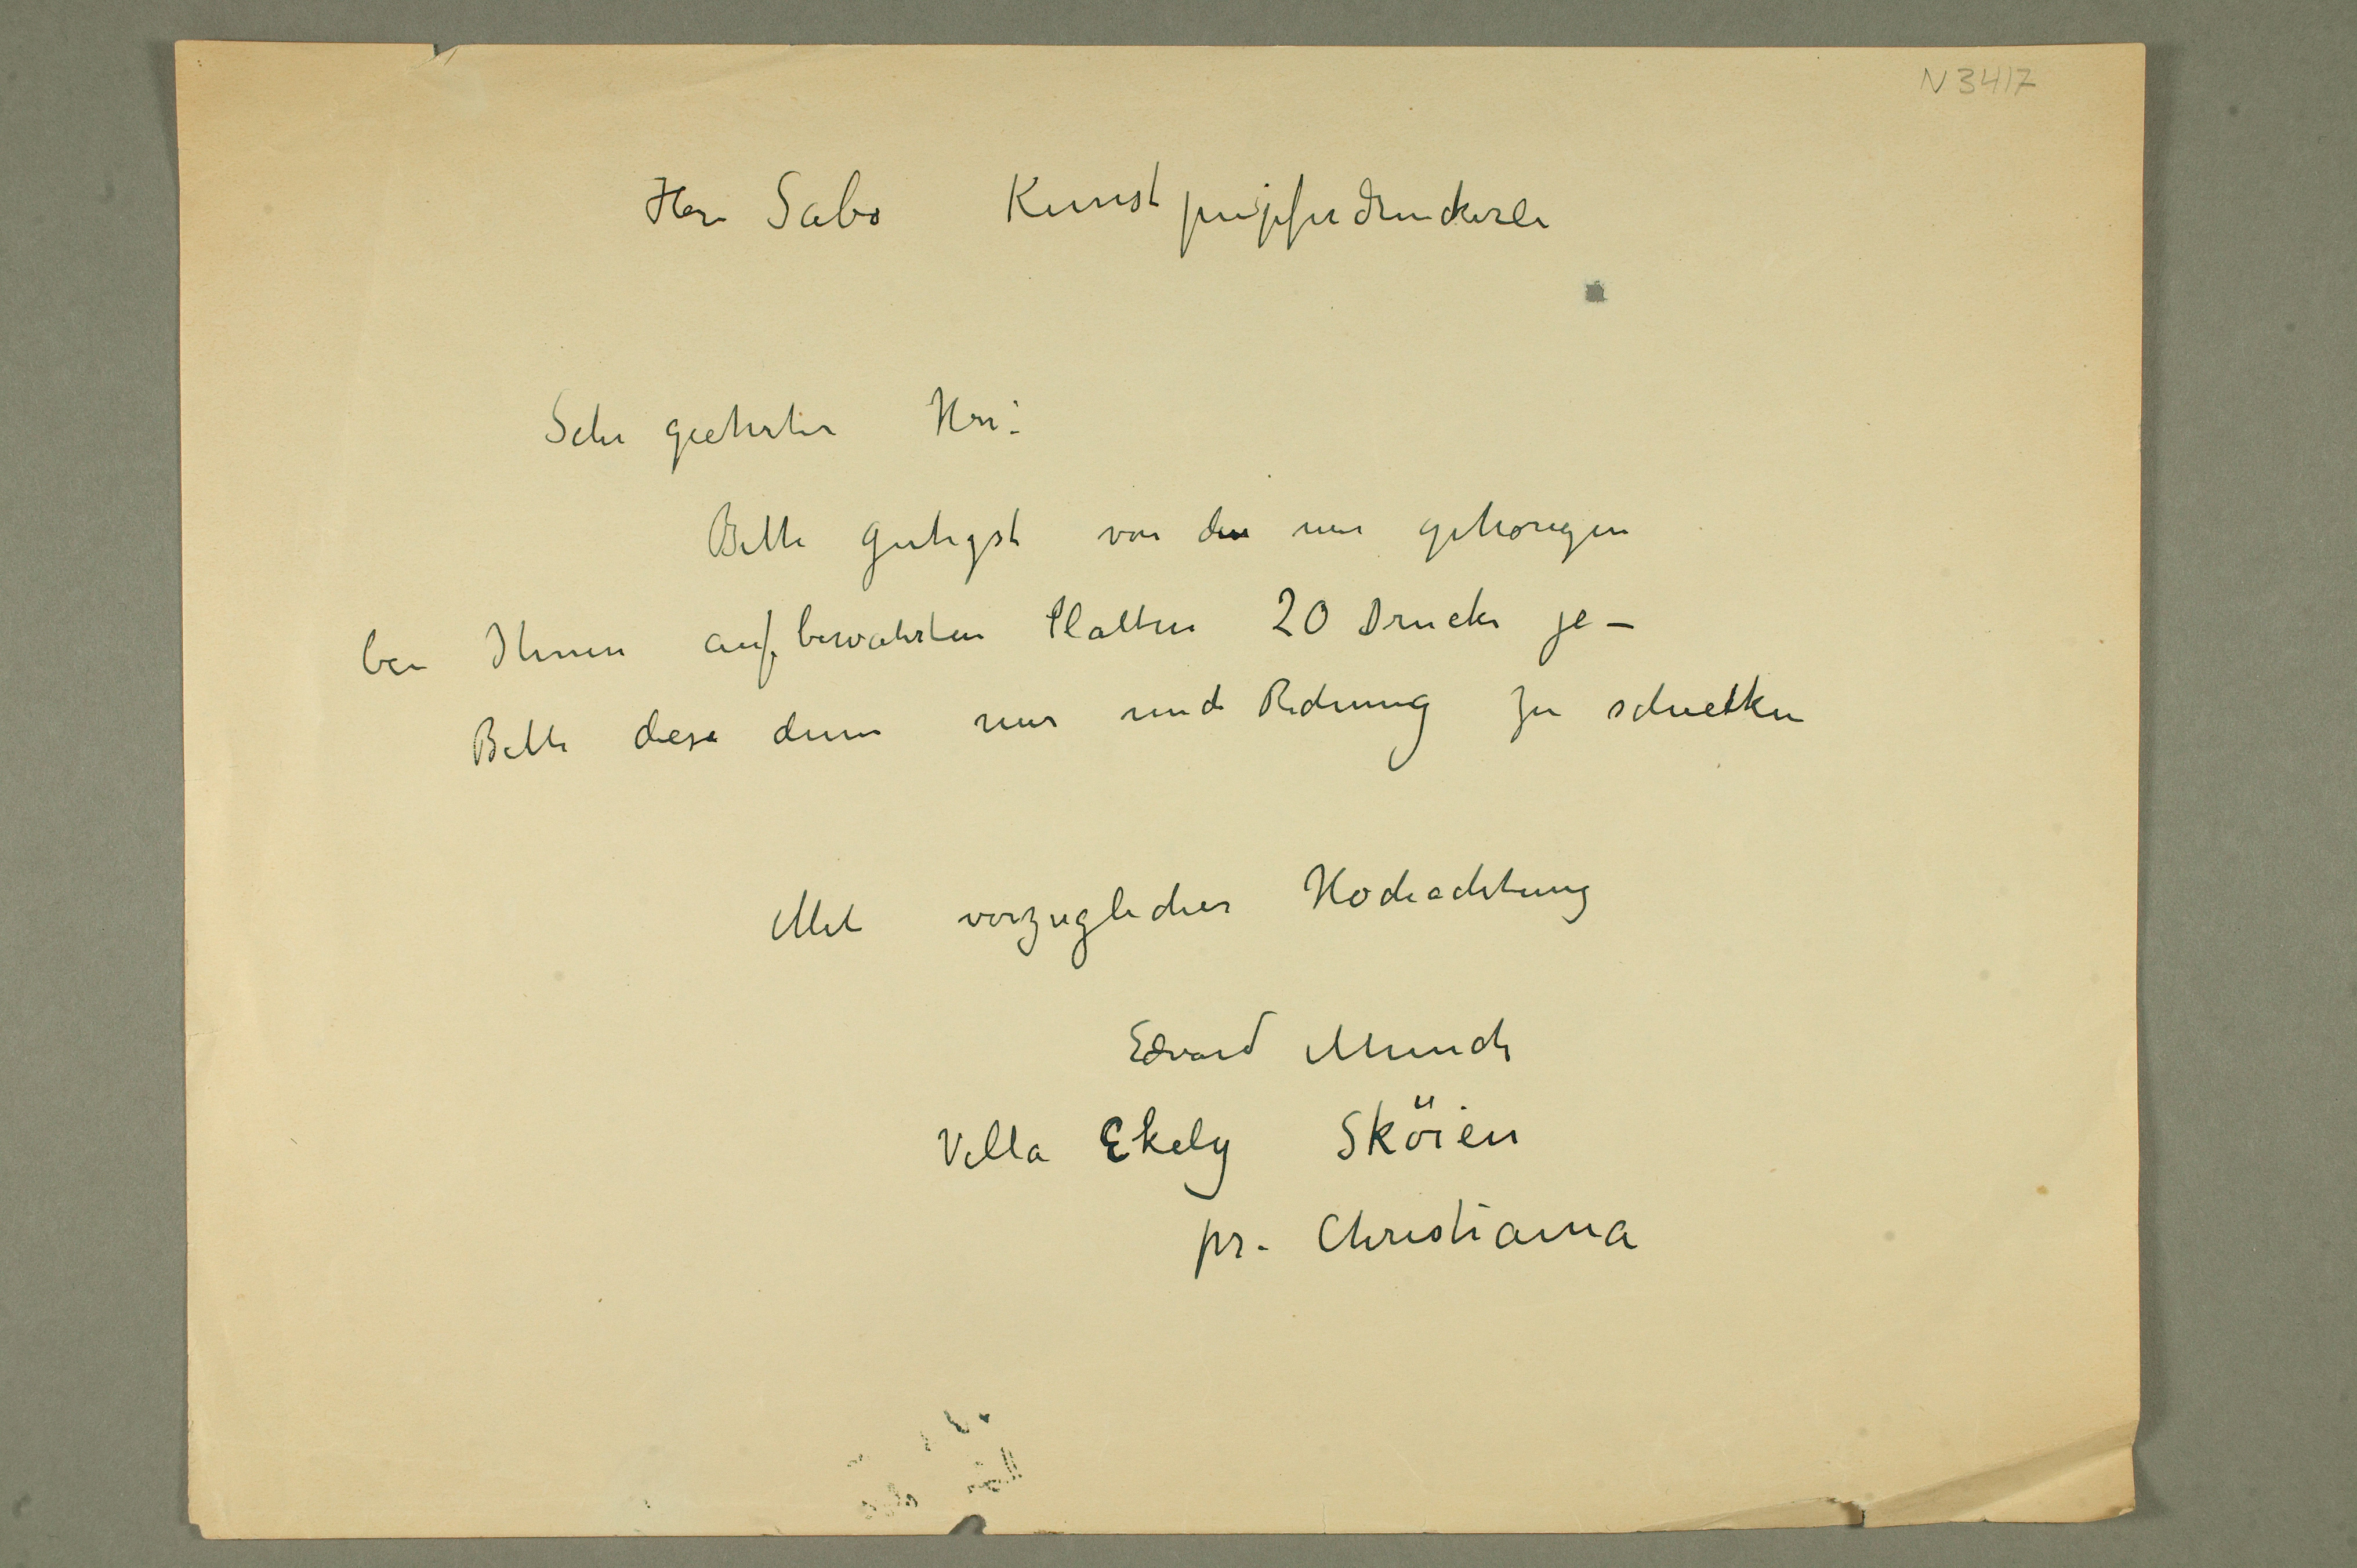 N 3417
Herr Sabo Kunstpupferdruckerei
Sehr geehrter Herr!
Bitte gütigst von den mir gehörigen
bei Ihnen aufbewahrten Platten 20 Drucke je –
Bitte diese denn mir und Rechnung zu schicken
Mit vorzuglicher Hochachtung
Edvard Munch
Villa Ekely Sköien
pr. Christiania